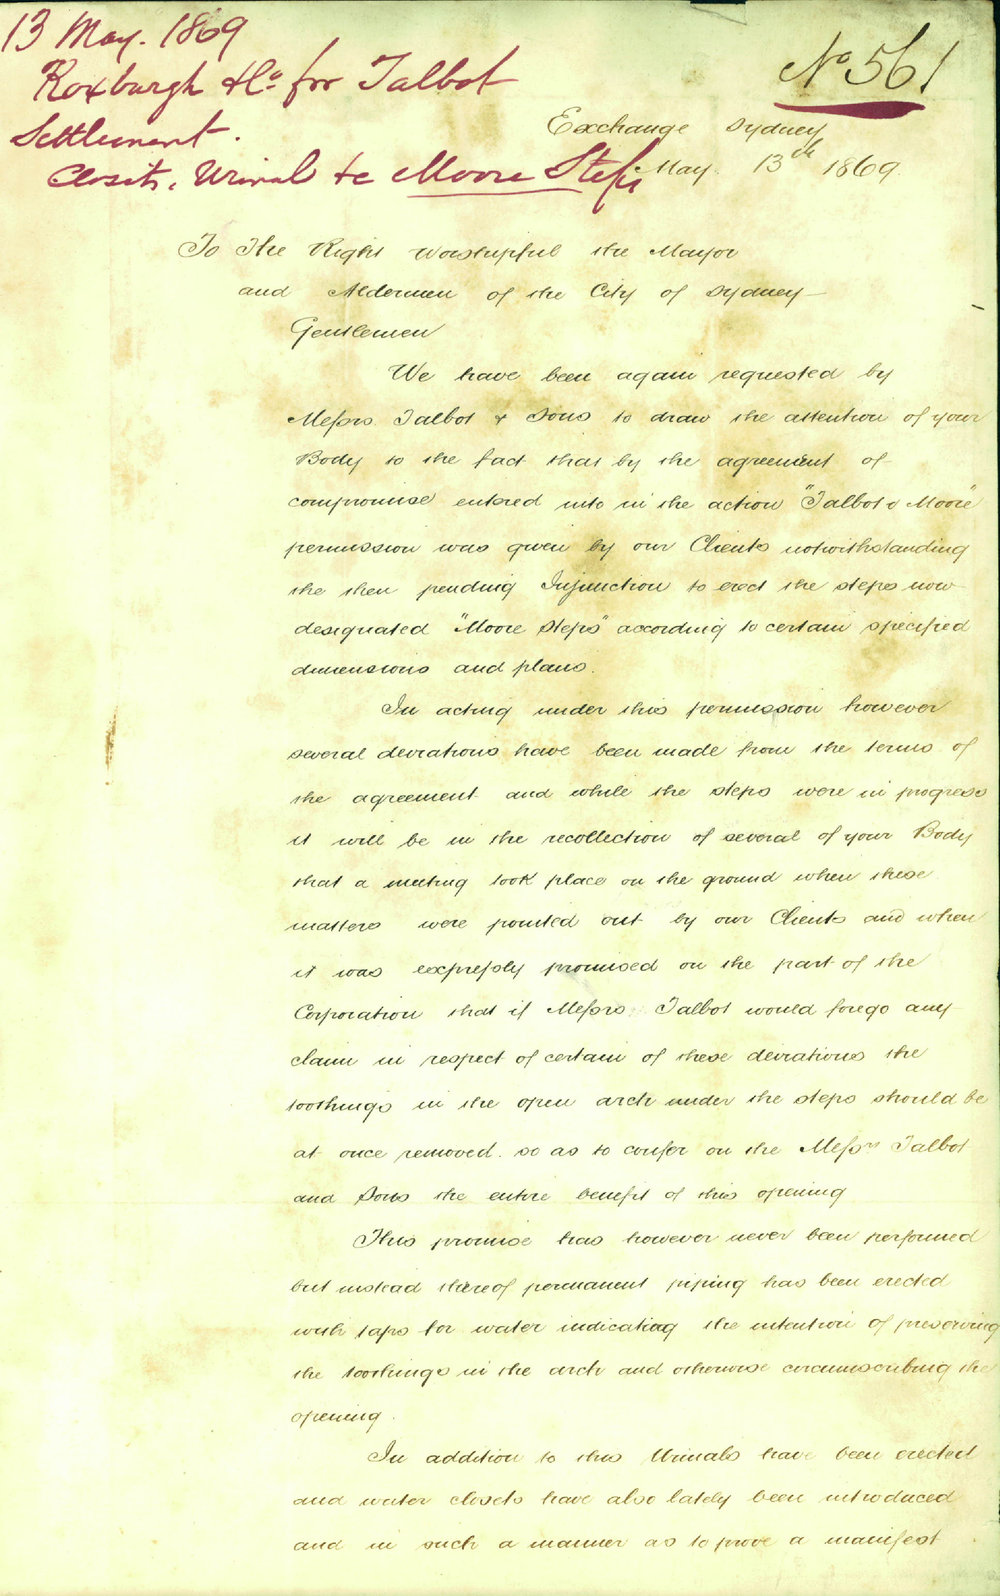 13 May. 1869
Roxburgh & Co. for Talbot
Settlement.
Closets, Urinal &c Moore Steps
No 561
Exchange Sydney
May 13th 1869.
To The Right Worshipful the Mayor
and Aldermen of the City of Sydney—
Gentlemen
We have been again requested by
Messrs Talbot & Sons to draw the attention of your
Body to the fact that by the agreement of
compromise entered into in the action "Talbot v Moore"
permission was given by our Clients notwithstanding
the then pending Injunction to erect the steps now
designated "Moore Steps" according to certain specified
dimensions and plans.
In acting under this permission however
several deviations have been made from the terms of
the agreement and while the steps were in progress
it will be in the recollection of several of your Body
that a meeting took place on the ground when these
matters were pointed out by our Clients and when
it was expressly promised on the part of the
Corporation that if Messrs Talbot would forego any
claim in respect of certain of these deviations the
toothings in the open arch under the steps should be
at once removed. so as to confer on the Messrs Talbot
and Sons the entire benefit of this opening
This promise has however never been performed
but instead thereof permanent piping has been erected
with taps for water indicating the intention of preserving
the toothings in the arch and otherwise circumscribing the
opening.
In addition to this Urinals have been erected
and water closets have also lately been introduced
and in such a manner as to prove a manifest